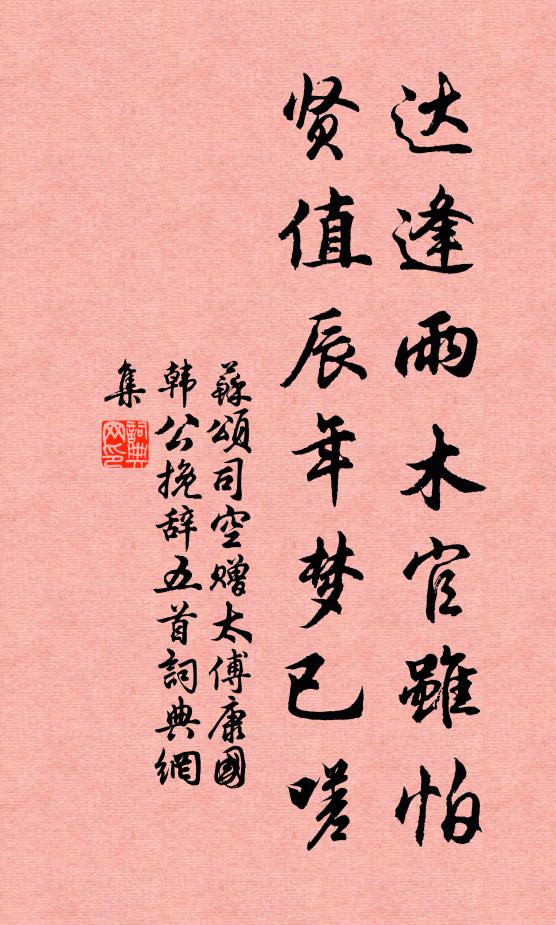 达逢雨木官虽怕
贤值辰年梦已嗟
蘇頌司空赠太傅康國
韩公挽辞五首詞典網
集
詞典網印